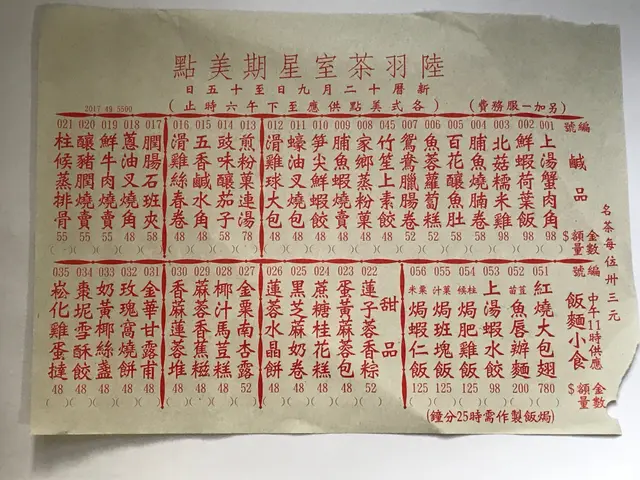 陸羽茶室星期美點
新曆十二月九日至十五日
(各式美點供應至下午六時止)
(另加一服務費)
2017 49 5500
名茶每位卅三元
編號 鹹品 金數 額量 $
001 上湯蟹肉角 98
002 鮮蝦荷葉飯 98
003 北菇糯米雞 98
004 脯魚燒腩卷 58
005 百花釀魚肚 58
006 魚蓉蘿蔔糕 52
007 鴛鴦臘腸卷 52
045 竹笙上素餃 48
008 家鄉蒸粉菓 48
009 脯魚蝦燒賣 48
010 笋尖鮮蝦餃 48
011 蠔油叉燒包 48
012 滑雞球大包 48
013 煎粉菓連湯 78
014 豉味釀茄子 58
015 五香鹹水角 48
016 滑雞絲春卷 48
017 膶腸石班夾 58
018 蔥油叉燒角 48
019 鮮牛肉燒賣 48
020 釀豬膶燒賣 55
021 柱侯蒸排骨 55
中午11時供應
編號 飯麵小食 金數 額量 $
051 紅燒大包翅 780
052 荳苗魚唇辦麵 200
053 上湯蝦水餃 98
054 柱候焗肥雞飯 125
055 汁焗班塊飯 125
056 粟米焗蝦仁飯 125
(焗飯製作需時25分鐘)
甜品
022 蓮子蓉香粽 52
023 蛋黃麻蓉包 48
024 蔗糖桂花糕 48
025 黑芝麻奶卷 48
026 蓮蓉水晶餅 48
027 金粟南杏露 52
028 椰汁馬荳糕 48
029 蔴蓉香蕉糍 48
030 香麻蓮蓉堆 48
031 金華甘露甫 48
032 玫瑰窩燒餅 48
033 奶黃椰絲盞 48
034 棗坭雪酥餃 48
035 崧化雞蛋撻 48